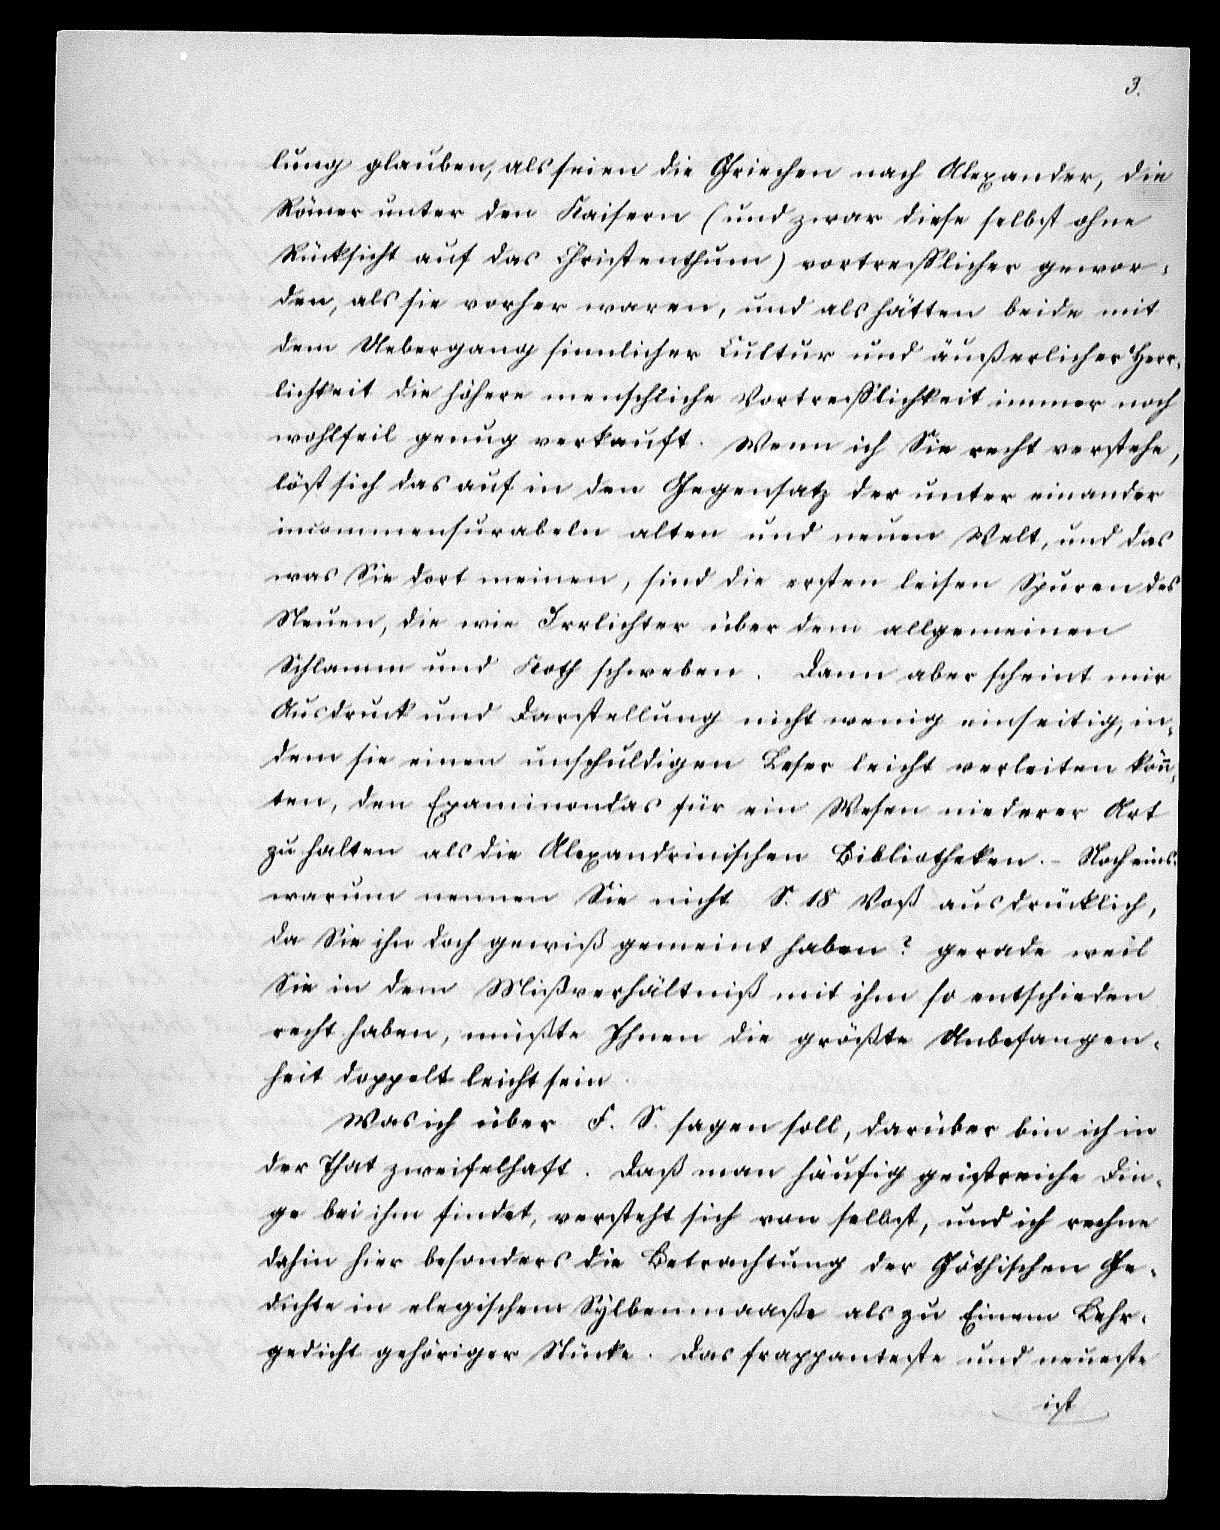 3.
lung glauben, als seien die Griechen nach Alexander, die
Römer unter den Kaisern (und zwar diese selbst ohne
Rücksicht auf das Christenthum) vortrefflicher gewor-
den, als sie vorher waren, und als hätten beide mit
dem Uebergang sinnlicher Cultur und äußerlicher Herr-
lichkeit die höhere menschliche Vortrefflichkeit immer noch
wohlfeil genug verkauft. Wenn ich Sie recht verstehe,
löst sich das auf in den Gegensatz der unter einander
incommensurabeln alten und neuen Welt, und das
was Sie dort meinen, sind die ersten leisen Spuren des
Neuen, die wie Irrlichter über dem allgemeinen
Schlamm und Koth schweben. Dann aber scheint mir
Ausdruck und Darstellung nicht wenig einseitig, in-
dem sie einen unschuldigen Leser leicht verleiten könn-
ten, den Epaminondas für ein Wesen niederer Art
zu halten als die Alexandrinischen Bibliotheken. – Noch eins:
warum nennen Sie nicht S. 18 Voß ausdrücklich,
da Sie ihn doch gewiß gemeint haben? gerade weil
Sie in dem Mißverhältniß mit ihm so entschieden
recht haben, müßte Ihnen die größte Unbefangen-
heit doppelt leicht sein.
Was ich über F. S. sagen soll, darüber bin ich in
der That zweifelhaft. Daß man häufig geistreiche Din-
ge bei ihm findet, versteht sich von selbst, und ich rechne
dahin hier besonders die Betrachtung der Göthischen Ge-
dichte in elegischem Sylbenmaaße als zu Einem Lehr-
gedicht gehöriger Stücke. Das frappanteste und neueste
ist